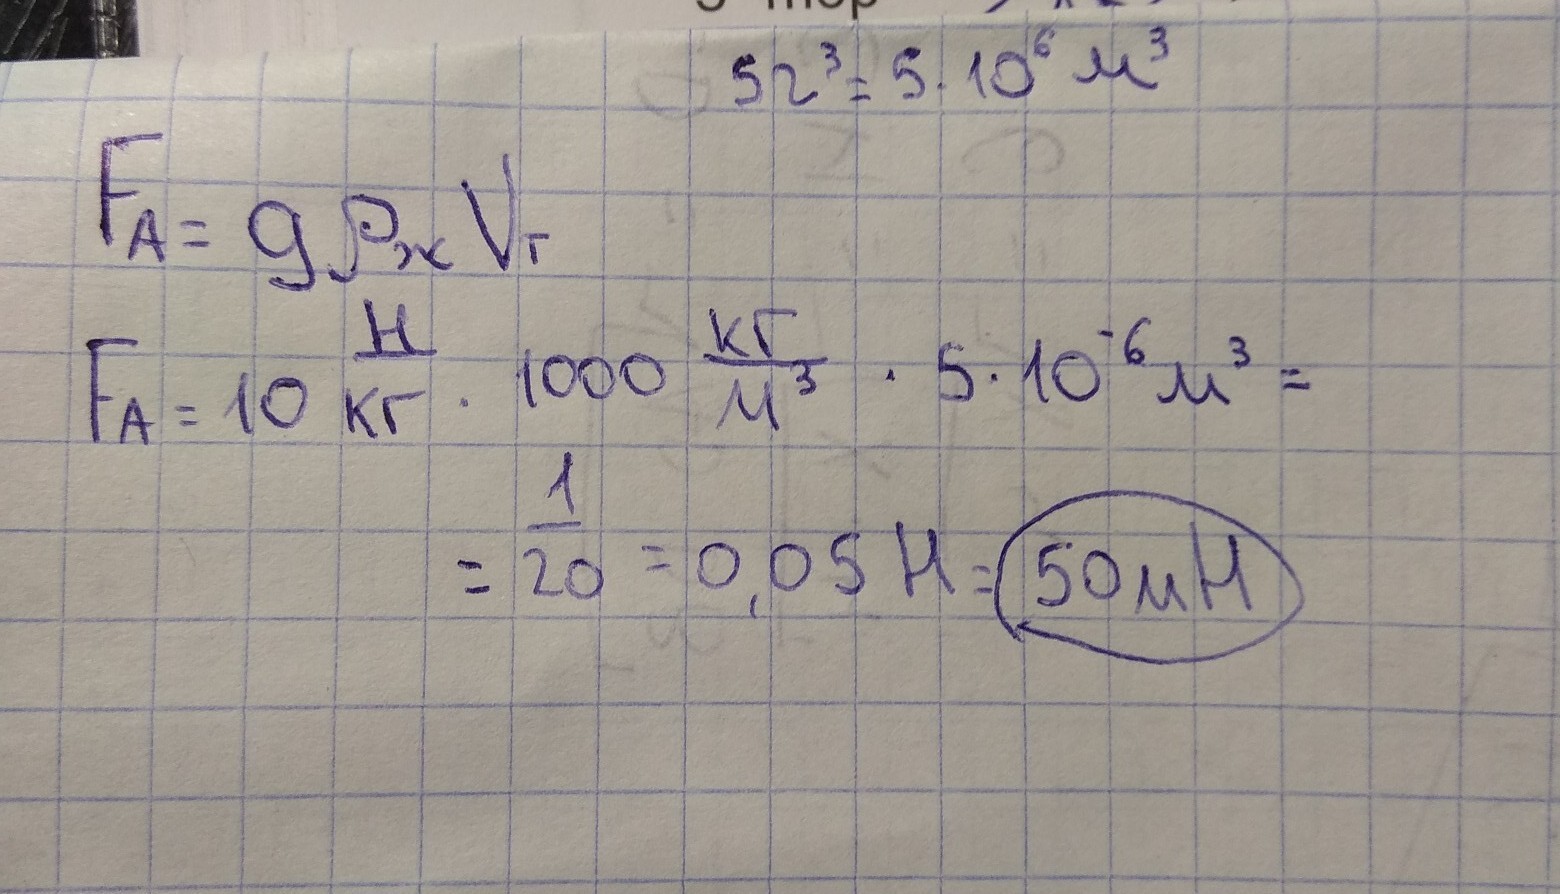 5г³ = 5 · 10⁶ м³
F_A = gρ_ж V_т
F_A = 10 Н/кг · 1000 кг/м³ · 5 · 10⁻⁶ м³ =
= 1/20 = 0,05 Н = 50 мН